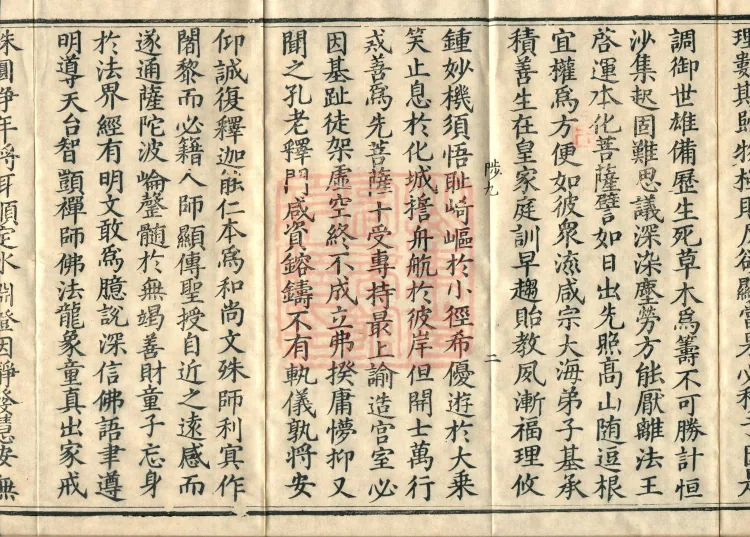 調御世雄備歷生死草木爲籌不可勝計恒
沙集起固難思議深染塵勞方能厭離法王
啓運本化菩薩譬如日出先照高山随逗根
宜權爲方便如彼衆流咸宗大海弟子基承
積善生在皇家庭訓早趨貽教夙漸福理攸
陟九 二
鍾妙機須悟耻崎嶇於小徑希優遊於大乗
笑止息於化城擔舟航於彼岸但開士萬行
戒善爲先菩薩十受專持最上諭造宫室必
因基趾徒架虛空終不成立弗揆庸懜抑又
聞之孔老釋門咸資鎔鑄不有軌儀孰將安
仰誠復釋迦能仁本爲和尚文殊師利冥作
闍黎而必籍人師顯傳聖授自近之遠感而
遂通薩陀波崙罄髓於無竭善財童子忘身
於法界經有明文敢爲臆說深信佛語聿遵
明導天台智顗禪師佛法龍象童真出家戒
珠圓淨年將耳順定水淵澄因靜發慧安無